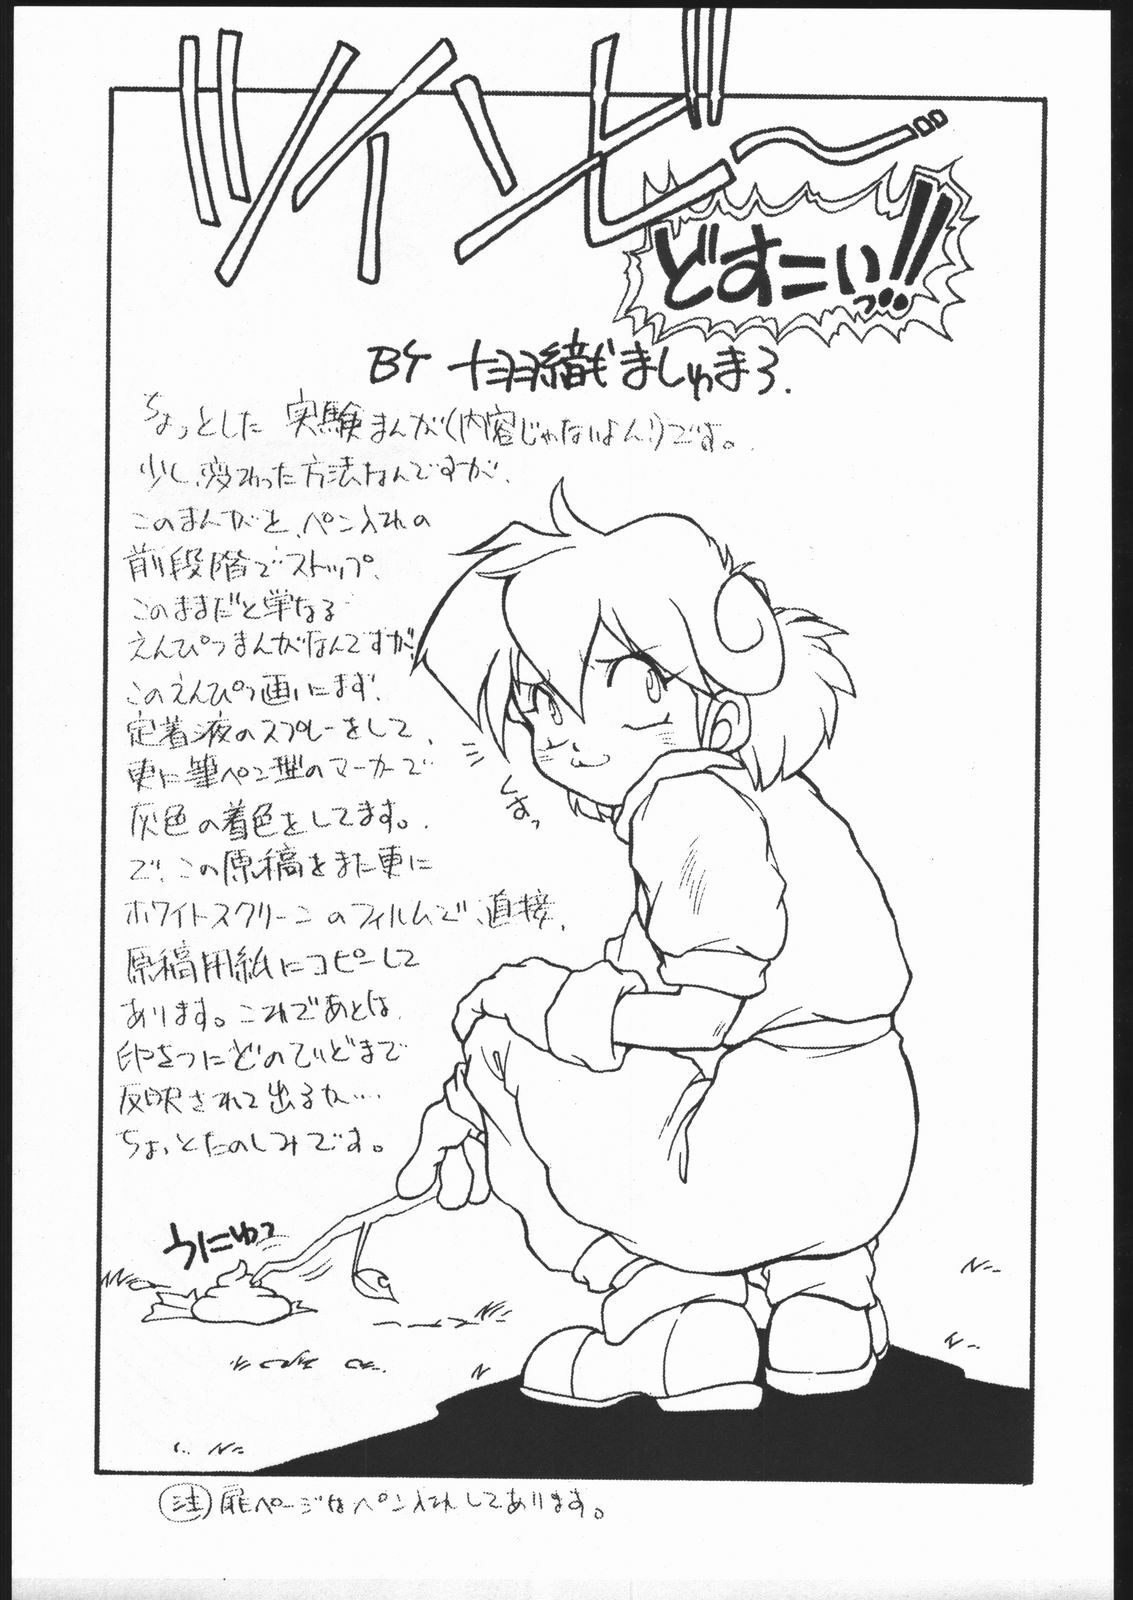 ツイハビ〜〜
どすこいっ!!
BY 十羽織ましゅまろ.
ちょっとした 実験まんが(内容じゃないよん!)です。
少し、変わった方法なんですが、
このまんがと、ペン入れの
前段階でストップ、
このままだと単なる
えんぴつまんがなんですが、
このえんぴつ画にまず、
定着液のスプレーをして、
更に筆ペン型のマーカーで
灰色の着色をしてます。
で、この原稿をまた更に
ホワイトスクリーンのフィルムで、直接、
原稿用紙にコピーして
あります。これであとは
印をつにどのていどまで
反映されて出るか…
ちょっとたのしみです。
しすっ
うにゅっ
注 扉ページはペン入れしてあります。